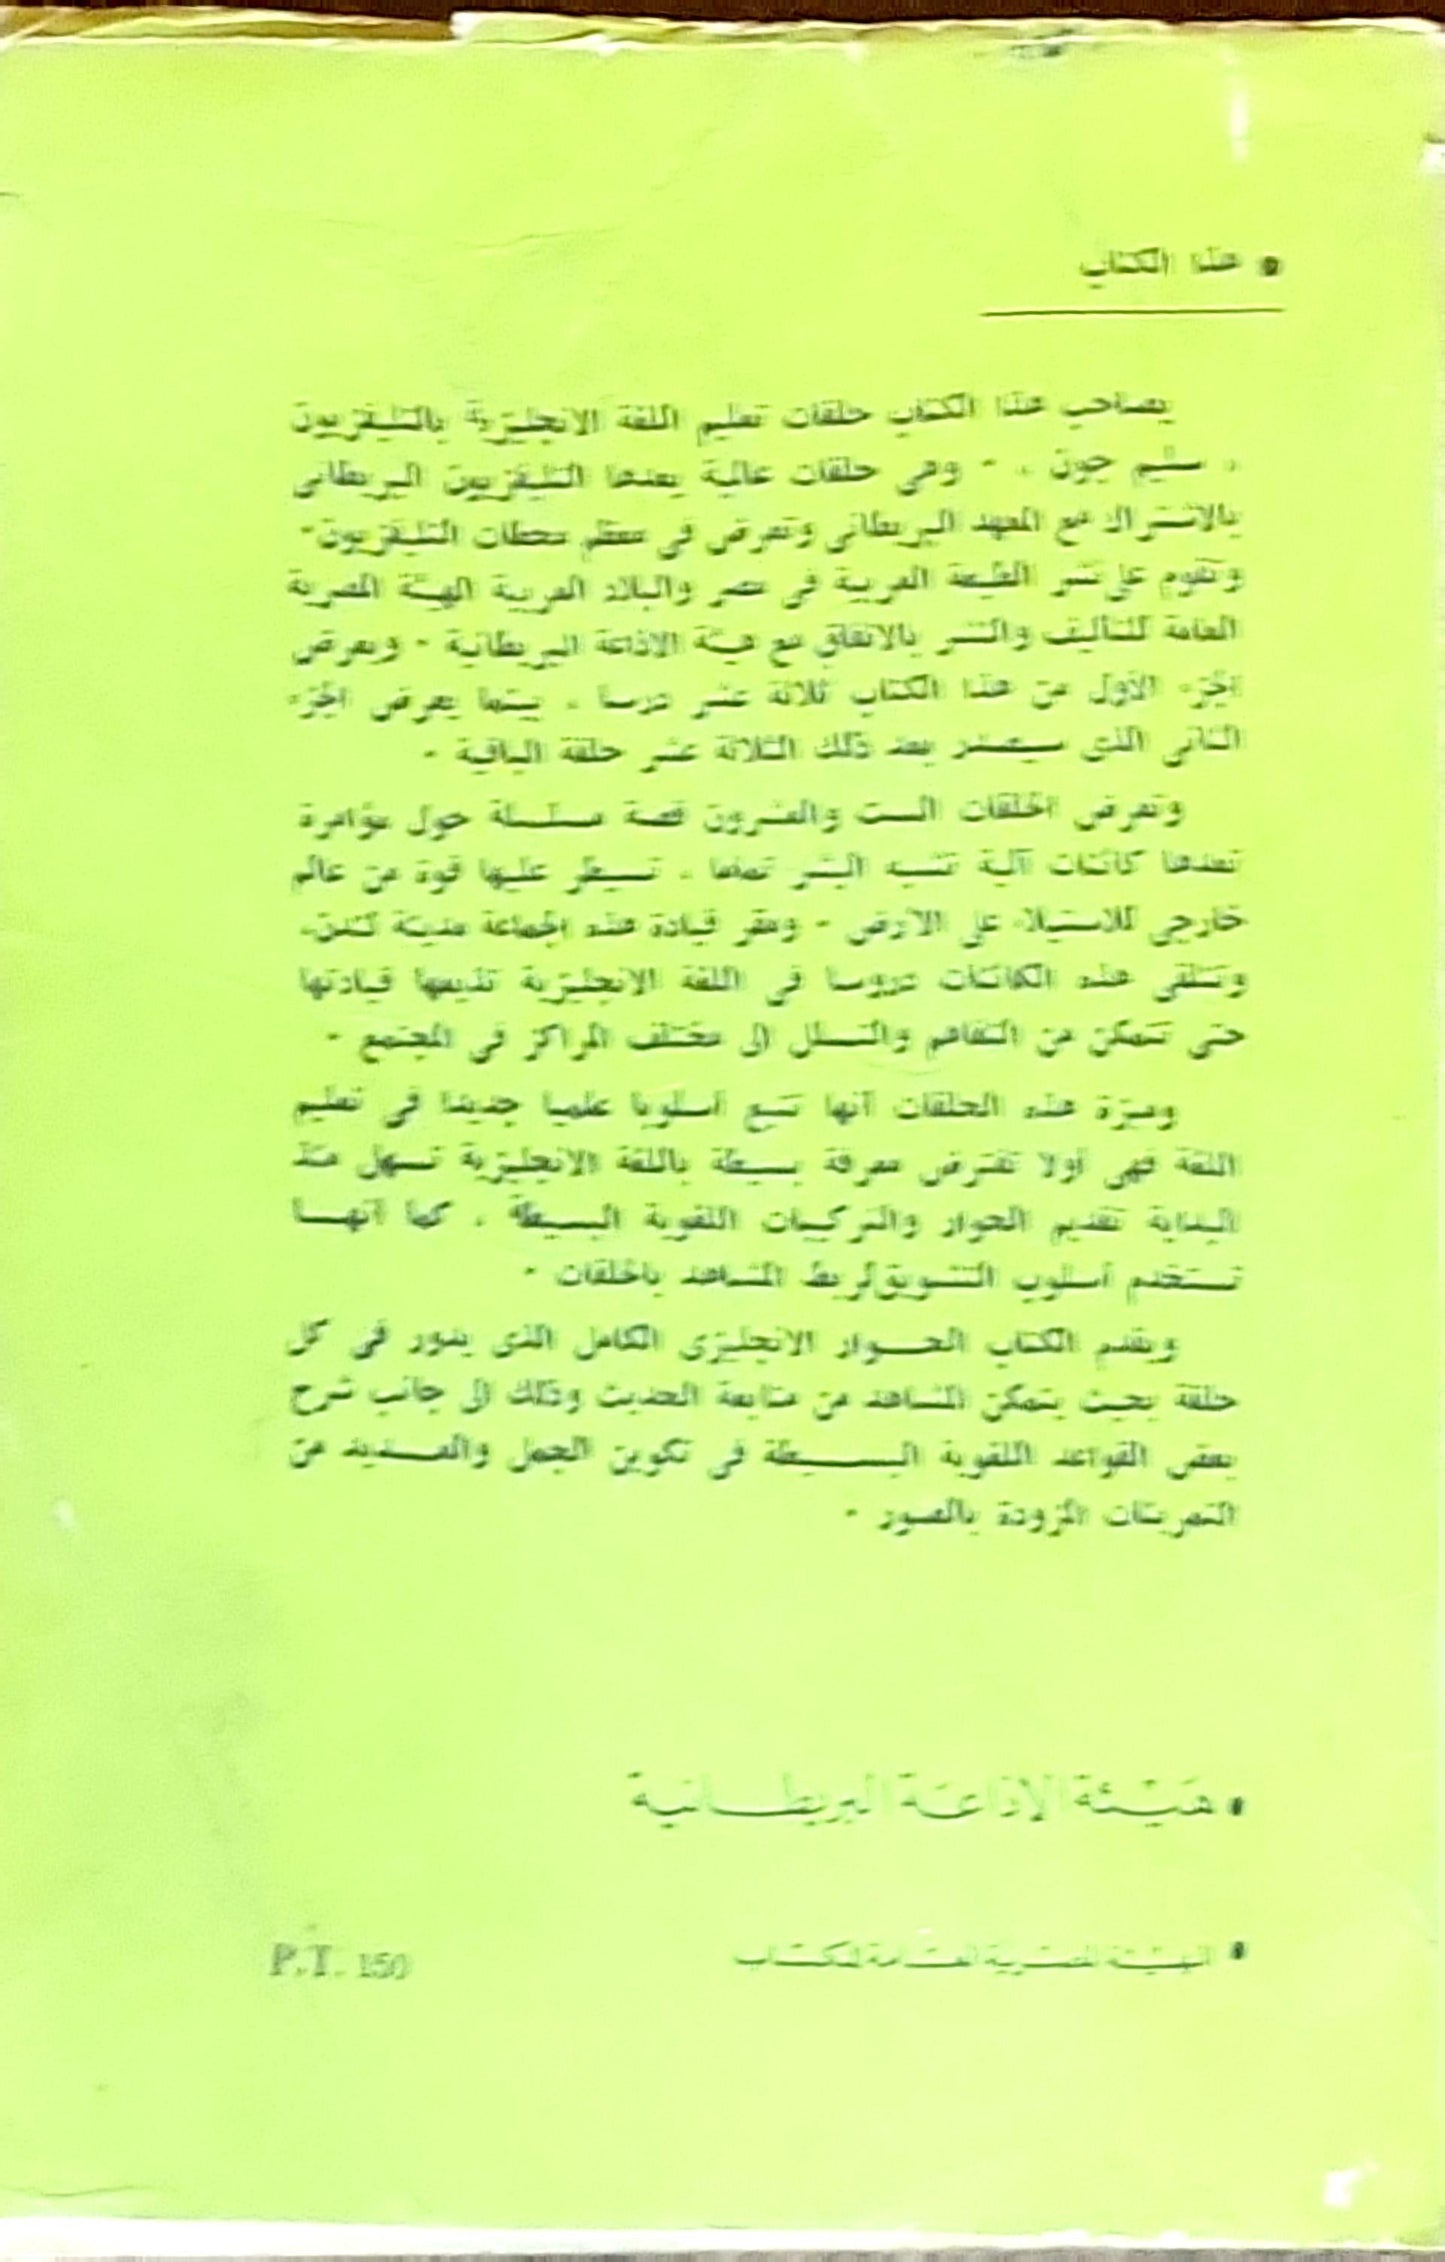 • هذا الكتاب
يصاحب هذا الكتاب حلقات تعليم اللغة الانجليزية بالتليفزيون
« سليم جون » - وهي حلقات عالية يعدها التليفزيون البريطاني
بالاشتراك مع المعهد البريطاني وتعرض في معظم محطات التليفزيون -
وتقوم على نشر الطبعة العربية في مصر والبلاد العربية الهيئة المصرية
العامة للتأليف والنشر بالاتفاق مع هيئة الاذاعة البريطانية - ويعرض
الجزء الأول من هذا الكتاب ثلاثة عشر درسا ، بينما يعرض الجزء
الثاني الذي سيصدر بعد ذلك الثلاثة عشر حلقة الباقية -
وتعرض الحلقات الست والعشرون قصة مسلسلة حول مؤامرة
تعدها كائنات آلية تشبه البشر تماما ، تسيطر عليها قوة من عالم
خارجي للاستيلاء على الأرض - ومقر قيادة هذه الجماعة مدينة لندن،
وتتلقى هذه الكائنات دروسا في اللغة الانجليزية تذيعها قيادتها
حتى تتمكن من التفاهم والتسلل الى مختلف المراكز في المجتمع -
وميزة هذه الحلقات أنها تتبع أسلوبا علميا جديدا في تعليم
اللغة فهي أولا تفترض معرفة بسيطة باللغة الانجليزية تسهل منذ
البداية تقديم الحوار والتركيبات اللغوية البسيطة ، كما أنهـا
تستخدم أسلوب التشويق لربط المشاهد بالحلقات -
ويقدم الكتاب الحـوار الانجليزي الكامل الذي يدور في كل
حلقة بحيث يتمكن المشاهد من متابعة الحديث وذلك الى جانب شرح
بعض القواعد اللغوية البسـيطة في تكوين الجمل والعـديد من
التمرينات المزودة بالصور -
• هيئة الإذاعة البريطانية
• الهيئة المصرية العامة للكتاب
P.T. 150